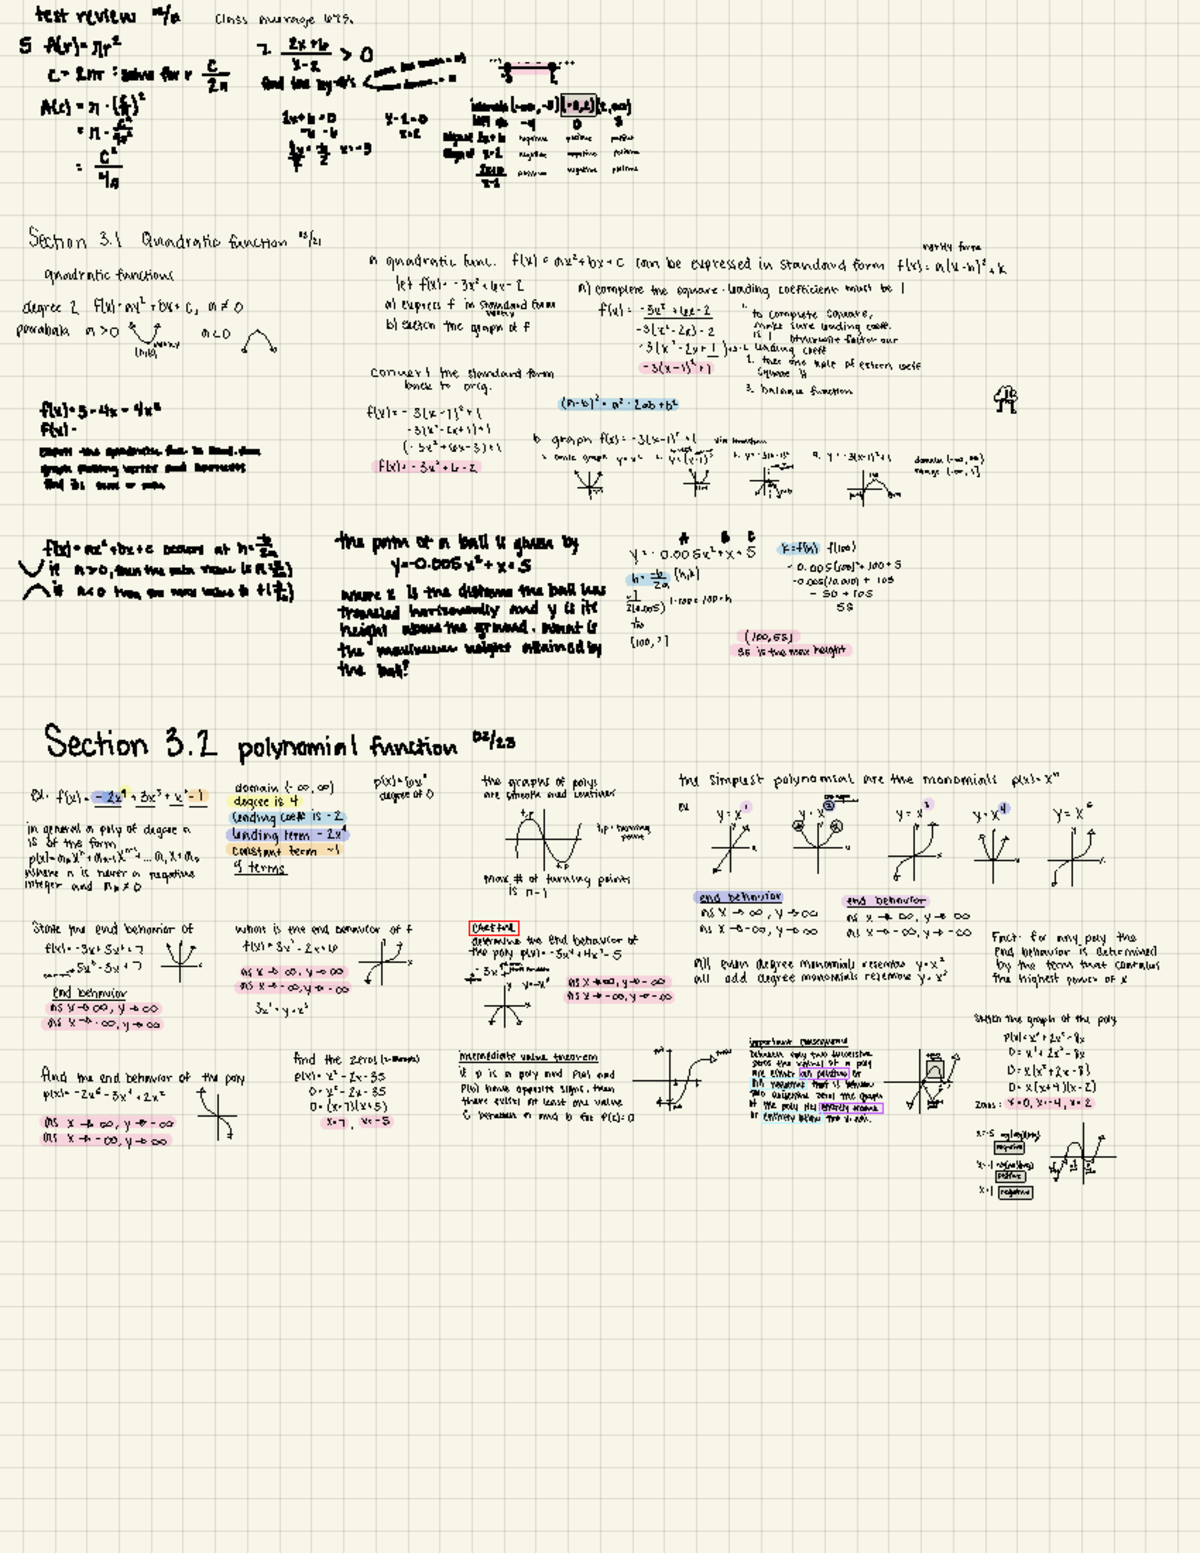 test review
Class average 67%.
5 A(r) = πr²
C = 2πr : solve for r C/2π
A(C) = π · (C/2π)²
= π · C²/4π²
= C²/4π
7. 2x+6 / x-2 > 0
find the
2x+6=0
-6 -6
2x/2 = -6/2 x=-3
x-2=0
x=2
intervals (-∞, -3) (-3, 2) (2, ∞)
-4 0 3
2x+6 negative positive positive
x-2 negative negative positive
2x+6/x-2 positive negative positive
Section 3.1 Quadratic function 02/21
quadratic functions
degree 2 f(x) = ax² + bx + c, a ≠ 0
parabola a > 0 a < 0
vertex
a quadratic func. f(x) = ax² + bx + c can be expressed in standard form f(x) = a(x-h)² + k
vertex form
let f(x) = -3x² + 6x - 2
a) express f in standard form
vertex
b) sketch the graph of f
a) complete the square · leading coefficient must be 1
f(x) = -3x² + 6x - 2
-3(x² - 2x) - 2
-3(x² - 2x + 1)
-3(x-1)² + 1
to complete square,
make sure leading coeff.
is 1 otherwise factor our
leading coeff
square it
3. balance function
convert the standard form
back to orig.
f(x) = -3(x-1)² + 1
-3(x² - 2x + 1) + 1
(-3x² + 6x - 3) + 1
f(x) = -3x² + 6x - 2
(a-b)² = a² - 2ab + b²
b graph f(x) = -3(x-1)² + 1
domain (-∞, ∞)
range (-∞, 1]
f(x) = 3 - 4x - 4x²
f(x) =
f(x) = ax² + bx + c occurs at h = -b/2a
if a > 0, then the min value is f(-b/2a)
if a < 0 then the max value is f(-b/2a)
the path of a ball is given by
y = -0.005x² + x + 5
where x is the distance the ball has
traveled horizontally and y is its
height above the ground. What is
the maximum height attained by
the ball?
A B C
y = -0.005x² + x + 5
h = -b/2a (h,k)
(100, ?)
k = f(h) f(100)
-0.005(100)² + 100 + 5
-0.005(10,000) + 105
-50 + 105
55
(100, 55)
55 is the max height
Section 3.2 polynomial function 02/23
ex. f(x) = -2x⁴ + 3x³ + x² - 1
domain (-∞, ∞)
degree is 4
leading coeff is -2
leading term -2x⁴
constant term -1
4 terms
degree of 0
in general a poly of degree n
is of the form
p(x) = aₙxⁿ + aₙ₋₁xⁿ⁻¹ + ... a₁x + a₀
where n is never a negative
integer and aₙ ≠ 0
the graphs of polys
are smooth and continues
t.p = turning
point
max # of turning points
is n-1
the simplest polynomial are the monomials p(x) = xⁿ
ex
y = x¹ y = x² y = x³ y = x⁴ y = x⁵
end behavior
as x → ∞, y → ∞
as x → -∞, y → ∞
end behavior
as x → ∞, y → ∞
as x → -∞, y → -∞
all even degree monomials resemble y = x²
all odd degree monomials resemble y = x³
Fact: for any poly the
end behavior is determined
by the term that contains
the highest power of x
State the end behavior of
end behavior
as x → ∞, y → ∞
as x → -∞, y → ∞
what is the end behavior of f
f(x) = 3x³ - 2x + 6
as x → ∞, y → ∞
as x → -∞, y → -∞
3x³ · y = x³
determine the end behavior of
the poly p(x) = -3x⁴ + 4x³ - 5
as x → ∞, y → -∞
as x → -∞, y → -∞
Find the end behavior of the poly
as x → ∞, y → -∞
as x → -∞, y → ∞
find the zeros
p(x) = x² - 2x - 35
0 = x² - 2x - 35
0 = (x-7)(x+5)
x=7, x=-5
intermediate value theorem
if p is a poly and P(a) and
P(b) have opposite signs, then
there exist at least one value
c between a and b for P(c)=0
important consequence
between any two successive
zeros the values of a poly
are either all positive or
all negative that is between
two successive zeros the graph
of the poly lies entirely above
or entirely below the x-axis.
Sketch the graph of the poly
P(x) = x³ + 2x² - 8x
0 = x³ + 2x² - 8x
0 = x(x² + 2x - 8)
0 = x(x+4)(x-2)
zeros: x=0, x=-4, x=2
x=-5
negative
x=-1
positive
x=1 negative